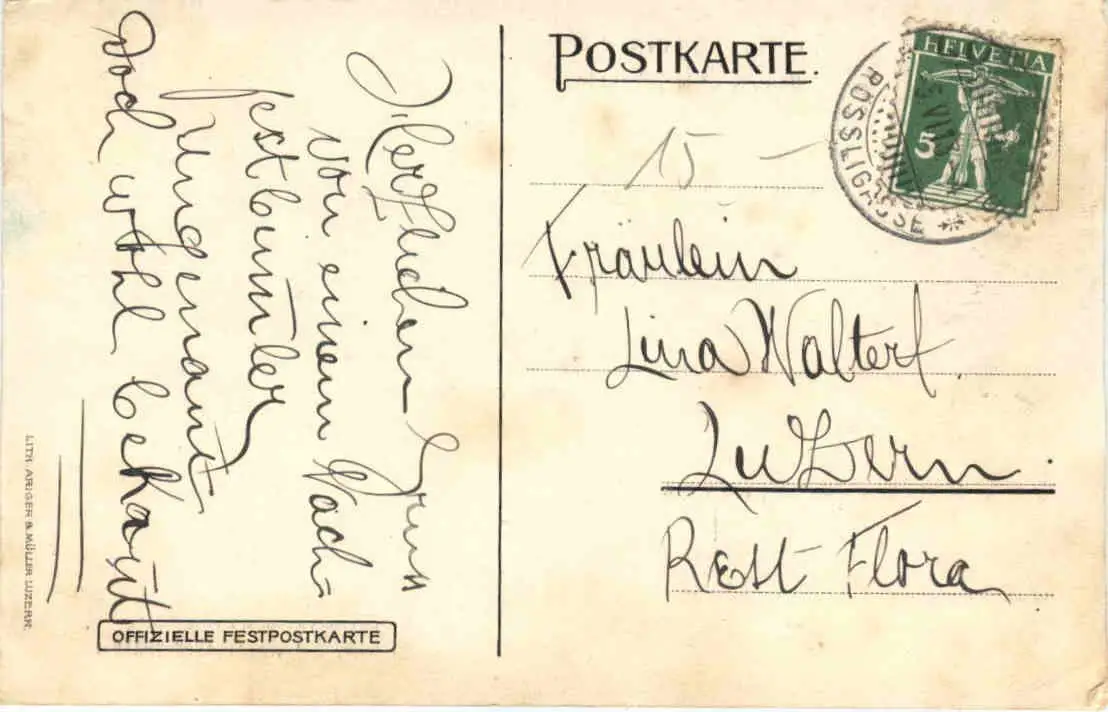 Herzlichen Gruss
von einem Nach-
festbumler
Ungenant
doch wohl bekant
LITH. ARIGER & MÜLLER LUZERN.
OFFIZIELLE FESTPOSTKARTE
POSTKARTE.
HELVETIA
5
RÖSSLIGASSE
15 —
Fräulein
Lina Walter
Luzern.
Rest Flora